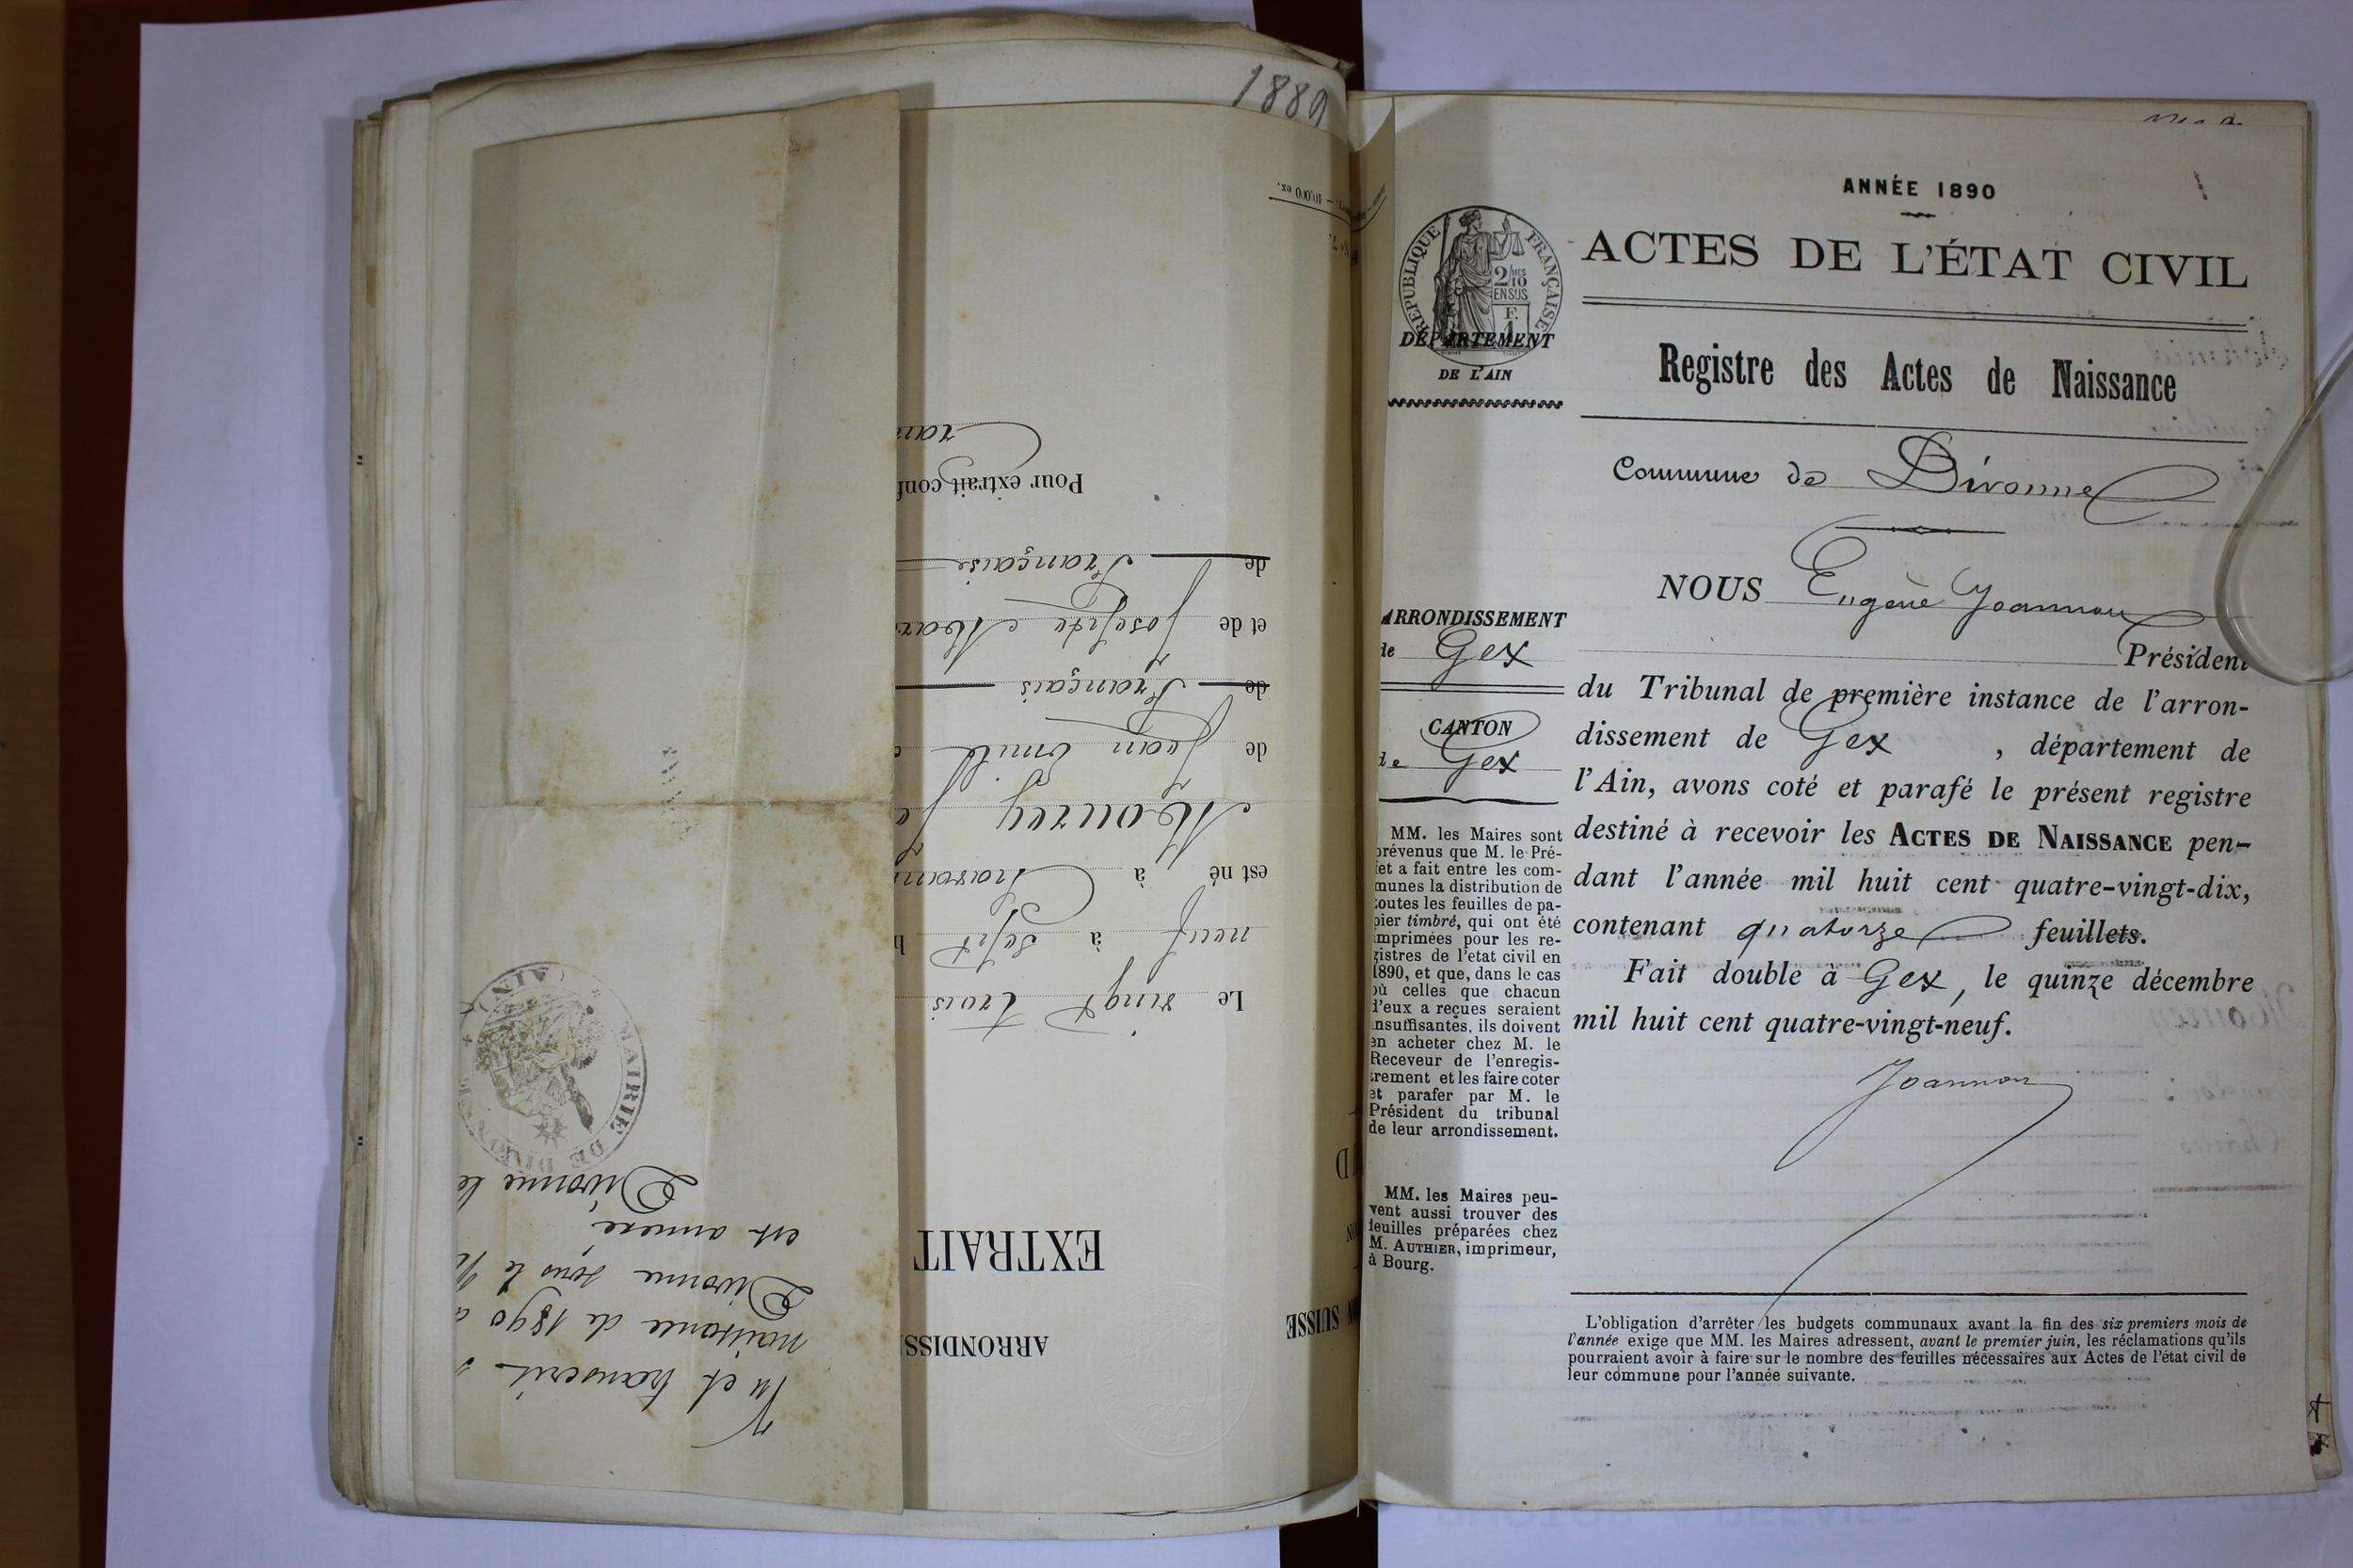 1889
ANNÉE 1890
ACTES DE L'ÉTAT CIVIL
RÉPUBLIQUE FRANÇAISE
2/10 MES
EN SUS
F.
1
DÉPARTEMENT
DE L'AIN
Registre des Actes de Naissance
Commune de Divonne
NOUS Eugène Joannon
Président
du Tribunal de première instance de l'arron-
dissement de Gex , département de
l'Ain, avons coté et parafé le présent registre
destiné à recevoir les ACTES DE NAISSANCE pen-
dant l'année mil huit cent quatre-vingt-dix,
contenant quatorze feuillets.
Fait double à Gex, le quinze décembre
mil huit cent quatre-vingt-neuf.
Joannon
ARRONDISSEMENT
de Gex
CANTON
de Gex
MM. les Maires sont
prévenus que M. le Pré-
fet a fait entre les com-
munes la distribution de
toutes les feuilles de pa-
pier timbré, qui ont été
imprimées pour les re-
gistres de l'etat civil en
1890, et que, dans le cas
où celles que chacun
d'eux a reçues seraient
insuffisantes, ils doivent
en acheter chez M. le
Receveur de l'enregis-
trement et les faire coter
et parafer par M. le
Président du tribunal
de leur arrondissement.
MM. les Maires peu-
vent aussi trouver des
feuilles préparées chez
M. AUTHIER, imprimeur,
à Bourg.
L'obligation d'arrêter les budgets communaux avant la fin des six premiers mois de
l'année exige que MM. les Maires adressent, avant le premier juin, les réclamations qu'ils
pourraient avoir à faire sur le nombre des feuilles nécessaires aux Actes de l'état civil de
leur commune pour l'année suivante.
SUISSE
ARRONDISS
EXTRAIT
Le vingt trois
neuf à sept h
est né à
Mourey
de Jean Emile
de Français
et de Josephte
de Française
Pour extrait conf
10,000 ex.
Vu et transcrit
naissance de 1890
Divonne sous le
est annexé
Divonne le
MAIRIE DE DIVONNE (AIN)